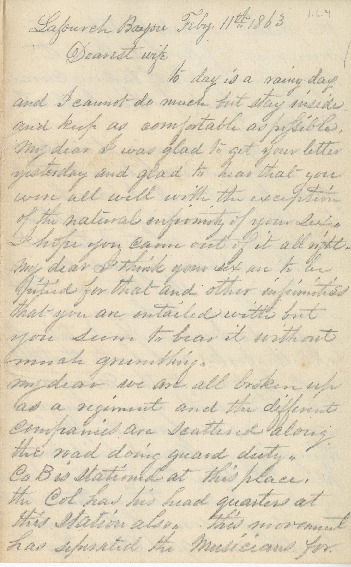 Lafourch Bayou Feby. 11th 1863
Dearest wife
to day is a rainy day
and I cannot do much but stay inside
and keep as comfortable as posible.
My dear I was glad to get your letter
yesterday and glad to hear that you
were all well with the exception
of the natural infirmity of your Sex,
I hope you came out of it all right.
my dear I think your sex are to be
pitied for that and other infirmities
that you are entailed with but
you seem to bear it without
much grumbling.
my dear we are all broken up
as a regiment and the different
companies are scattered along
the road doing guard duty,
Co B is stationed at this place.
the Col has his head quarters at
this Station also, this movement
has seperated the Musicians for